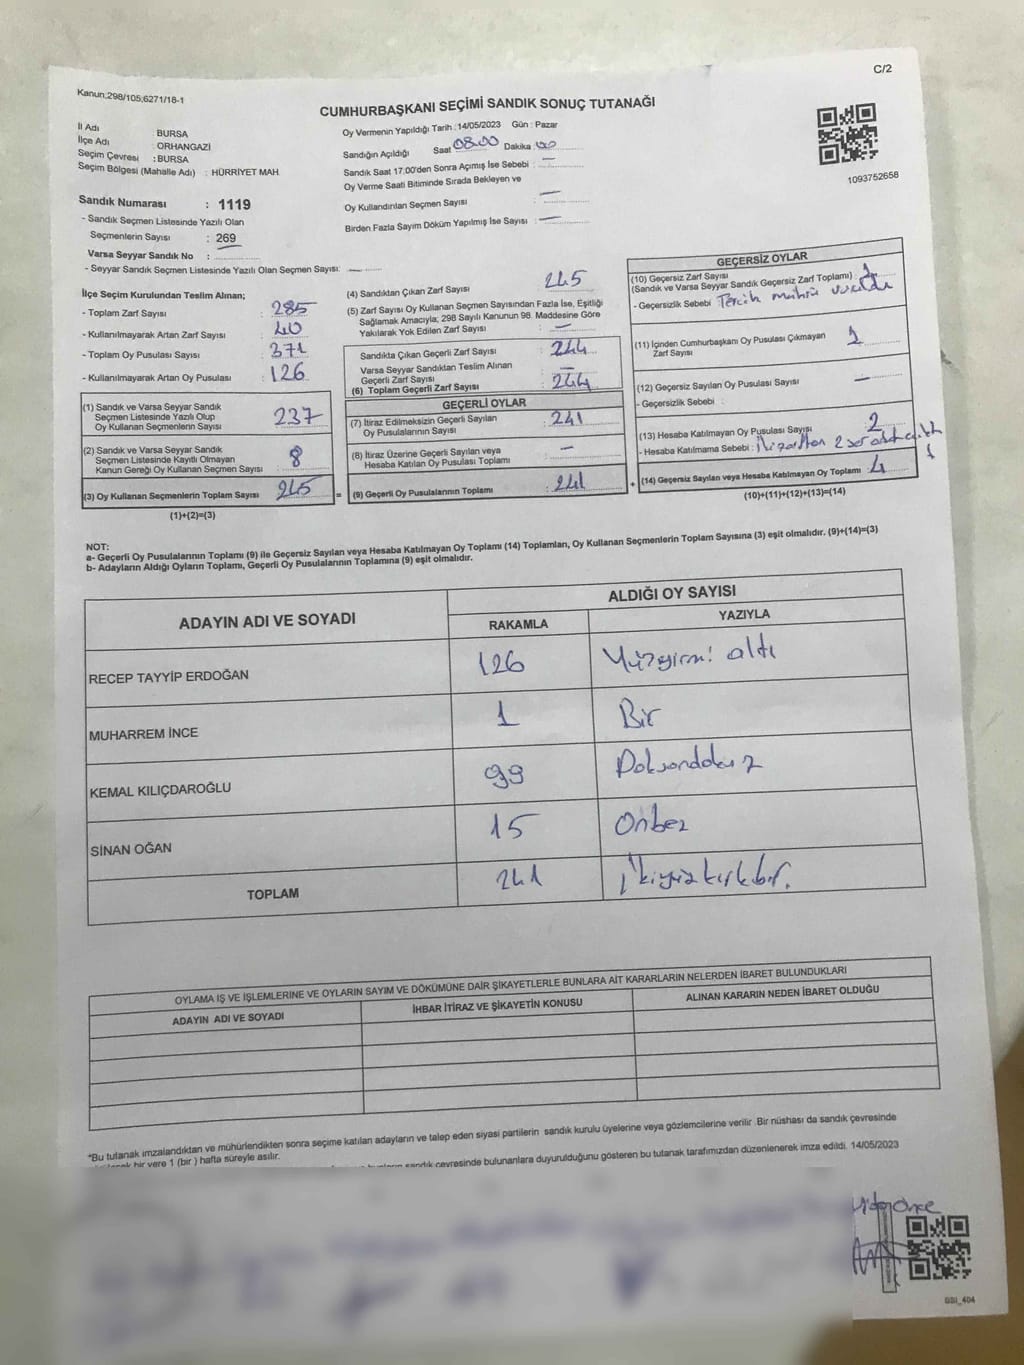 Kanun:298/105;6271/18-1
C/2
CUMHURBAŞKANI SEÇİMİ SANDIK SONUÇ TUTANAĞI
İl Adı BURSA
İlçe Adı : ORHANGAZİ
Seçim Çevresi : BURSA
Seçim Bölgesi (Mahalle Adı) : HÜRRİYET MAH.
Sandık Numarası : 1119
- Sandık Seçmen Listesinde Yazılı Olan
Seçmenlerin Sayısı : 269
Varsa Seyyar Sandık No :
- Seyyar Sandık Seçmen Listesinde Yazılı Olan Seçmen Sayısı: —
Oy Vermenin Yapıldığı Tarih : 14/05/2023 Gün : Pazar
Sandığın Açıldığı Saat 08.00 Dakika 00
Sandık Saat 17:00'den Sonra Açımış İse Sebebi : —
Oy Verme Saati Bitiminde Sırada Bekleyen ve
Oy Kullandırılan Seçmen Sayısı : —
Birden Fazla Sayım Döküm Yapılmış İse Sayısı : —
1093752658
İlçe Seçim Kurulundan Teslim Alınan;
- Toplam Zarf Sayısı : 285
- Kullanılmayarak Artan Zarf Sayısı : 40
- Toplam Oy Pusulası Sayısı : 371
- Kullanılmayarak Artan Oy Pusulası : 126
(1) Sandık ve Varsa Seyyar Sandık
Seçmen Listesinde Yazılı Olup
Oy Kullanan Seçmenlerin Sayısı 237
(2) Sandık ve Varsa Seyyar Sandık
Seçmen Listesinde Kayıtlı Olmayan
Kanun Gereği Oy Kullanan Seçmen Sayısı 8
(3) Oy Kullanan Seçmenlerin Toplam Sayısı 245 =
(1)+(2)=(3)
(4) Sandıktan Çıkan Zarf Sayısı 245
(5) Zarf Sayısı Oy Kullanan Seçmen Sayısından Fazla İse, Eşitliği
Sağlamak Amacıyla; 298 Sayılı Kanunun 98. Maddesine Göre
Yakılarak Yok Edilen Zarf Sayısı : —
Sandıkta Çıkan Geçerli Zarf Sayısı : 244
Varsa Seyyar Sandıktan Teslim Alınan
Geçerli Zarf Sayısı : —
(6) Toplam Geçerli Zarf Sayısı : 244
GEÇERLİ OYLAR
(7) İtiraz Edilmeksizin Geçerli Sayılan
Oy Pusulalarının Sayısı : 241
(8) İtiraz Üzerine Geçerli Sayılan veya
Hesaba Katılan Oy Pusulası Toplamı : —
(9) Geçerli Oy Pusulalarının Toplamı : 241 +
GEÇERSİZ OYLAR
(10) Geçersiz Zarf Sayısı
(Sandık ve Varsa Seyyar Sandık Geçersiz Zarf Toplamı) : 1
- Geçersizlik Sebebi : Tercih mührü vuruldu
(11) İçinden Cumhurbaşkanı Oy Pusulası Çıkmayan
Zarf Sayısı : 1
(12) Geçersiz Sayılan Oy Pusulası Sayısı : —
- Geçersizlik Sebebi :
(13) Hesaba Katılmayan Oy Pusulası Sayısı : 2
- Hesaba Katılmama Sebebi :
(14) Geçersiz Sayılan veya Hesaba Katılmayan Oy Toplamı : 4
(10)+(11)+(12)+(13)=(14)
NOT:
a- Geçerli Oy Pusulalarının Toplamı (9) ile Geçersiz Sayılan veya Hesaba Katılmayan Oy Toplamı (14) Toplamları, Oy Kullanan Seçmenlerin Toplam Sayısına (3) eşit olmalıdır. (9)+(14)=(3)
b- Adayların Aldığı Oyların Toplamı, Geçerli Oy Pusulalarının Toplamına (9) eşit olmalıdır.
ADAYIN ADI VE SOYADI
ALDIĞI OY SAYISI
RAKAMLA YAZIYLA
RECEP TAYYİP ERDOĞAN 126 Yüzyirmi altı
MUHARREM İNCE 1 Bir
KEMAL KILIÇDAROĞLU 99 Doksandokuz
SİNAN OĞAN 15 Onbeş
TOPLAM 241 İkiyüzkırkbir.
OYLAMA İŞ VE İŞLEMLERİNE VE OYLARIN SAYIM VE DÖKÜMÜNE DAİR ŞİKAYETLERLE BUNLARA AİT KARARLARIN NELERDEN İBARET BULUNDUKLARI
ADAYIN ADI VE SOYADI İHBAR İTİRAZ VE ŞİKAYETİN KONUSU ALINAN KARARIN NEDEN İBARET OLDUĞU
*Bu tutanak imzalandıktan ve mühürlendikten sonra seçime katılan adayların ve talep eden siyasi partilerin sandık kurulu üyelerine veya gözlemcilerine verilir. Bir nüshası da sandık çevresinde
bir yere 1 (bir ) hafta süreyle asılır.
sandık çevresinde bulunanlara duyurulduğunu gösteren bu tutanak tarafımızdan düzenlenerek imza edildi. 14/05/2023
GBI_404